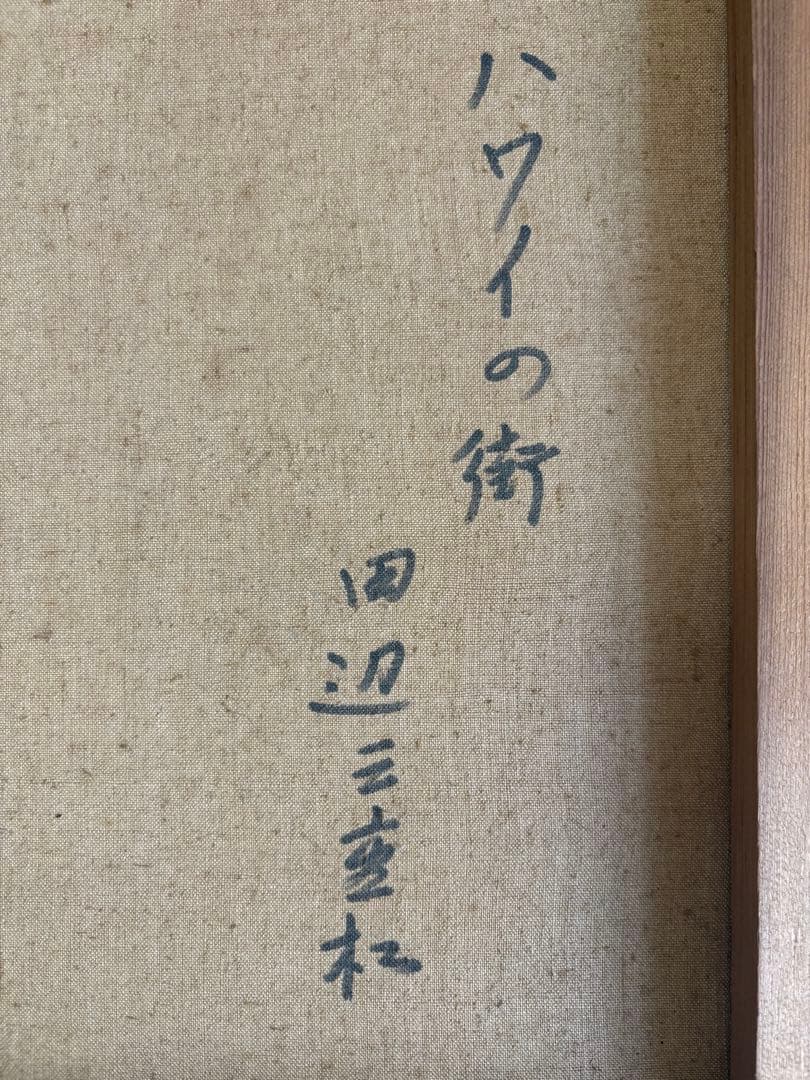 ハワイの街
田辺三重松